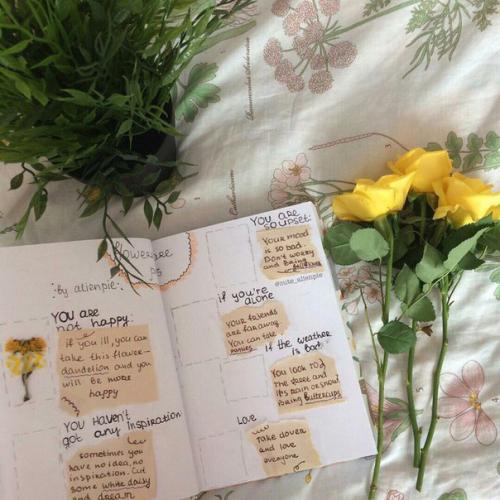 flower are
ps
:by alienpie:
YOU are
not happy:
if you ill, you can
take this flower-
dandelion and you
will be more
happy
YOU HAVEN'T
got any inspiration
sometimes you
have no idea, no
inspiration. Cut
some white daisy
and dream
YOU are
so upset:
Your mood
is so bad.
Don't worry
and bring
@cute_alienpie
if you're
alone
Your friends
are far away.
You can take
if the weather
is bad
You look to
the
it's rain or snow
bring Buttercups
Love
Take dover
and love
everyone